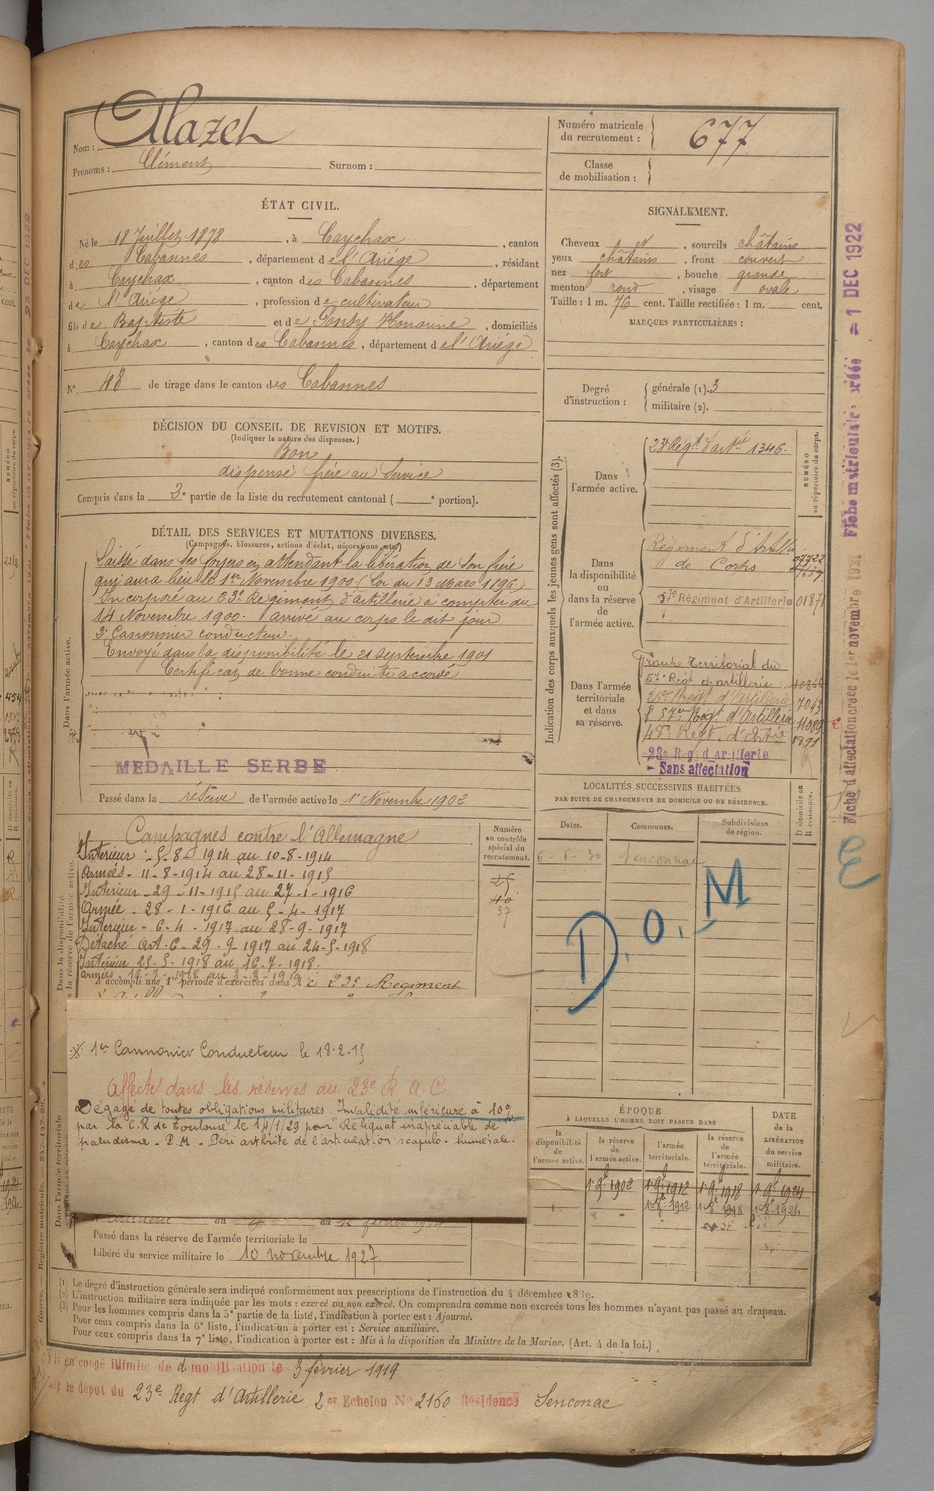 Nom : Alazet
Prénoms : Clément Surnom :
Numéro matricule du recrutement : 677
Classe de mobilisation :
ÉTAT CIVIL.
Né le 18 Juillet 1878, à Caychax, canton
des Cabannes, département de l'Ariège, résidant
à Caychax, canton des Cabannes, département
de l'Ariège, profession de cultivateur
fils de Baptiste et de Honorine, domiciliés
à Caychax, canton des Cabannes, département de l'Ariège
N° 48 de tirage dans le canton des Cabannes
SIGNALEMENT.
Cheveux et, sourcils châtains
yeux châtains, front couvert
nez fort, bouche grande
menton rond, visage ovale
Taille : 1 m. 76 cent. Taille rectifiée : 1 m. cent.
MARQUES PARTICULIÈRES :
Degré d'instruction : générale (1). 3
militaire (2).
DÉCISION DU CONSEIL DE REVISION ET MOTIFS.
(Indiquer la nature des dispenses.)
Bon
dispensé frère au Service
Compris dans la 3e partie de la liste du recrutement cantonal ( e portion).
DÉTAIL DES SERVICES ET MUTATIONS DIVERSES.
(Campagnes, blessures, actions d'éclat, décorations, etc.)
Laissé dans ses foyers en attendant la libération de son frère
qui aura lieu le 1er Novembre 1900 (Loi du 13 Mars 1896)
Incorporé au 23e Régiment d'artillerie à compter du
14 Novembre 1900. Arrivé au corps le dit jour
2e Canonnier conducteur.
Envoyé dans la disponibilité le 21 Septembre 1901
Certificat de bonne conduite accordé
MEDAILLE SERBE
Passé dans la réserve de l'armée active le 1er Novembre 1902
Dans l'armée active.
Indication des corps auxquels les jeunes gens sont affectés (3).
Dans l'armée active. 23e Régt d'artrie 1346.
NUMÉRO au répertoire du corps.
Dans la disponibilité ou dans la réserve de l'armée active.
Régiment d'Artillie
de Corps
Régiment d'Artillerie 0187
Dans l'armée territoriale et dans sa réserve.
Groupe Territorial du
57e Régt d'artillerie
Régt d'Artillerie 7043
57e Régt d'Artillerie 11089
Régt d'Artie 1891
23e Rég d'Artillerie
Sans affectation
LOCALITÉS SUCCESSIVES HABITÉES
PAR SUITE DE CHANGEMENTS DE DOMICILE OU DE RÉSIDENCE.
Dates. Communes. Subdivisions de région. D domicile ou R résidence.
Senconnac
D.O.M
Campagnes contre l'Allemagne
Intérieur - 5-8-1914 au 10-8-1914
Armées - 11-8-1914 au 28-11-1915
Intérieur - 29-11-1915 au 27-1-1916
Armée - 28-1-1916 au 5-4-1917
Intérieur - 6-4-1917 au 28-9-1917
Détaché Art. 6 - 29-9-1917 au 24-5-1918
Intérieur 25-5-1918 au 16-7-1918.
A accompli une 1re période d'exercices dans le 23e Régiment
Numéro au contrôle spécial du recrutement.
37
1er Cannonier Conducteur le 18-2-15
Affecté dans les réserves au 23e R.A.C.
Dégagé de toutes obligations militaires. Invalidité inférieure à 10%
par la C.R de Toulouse le 14/1/29 pour Reliquat inappréciable de
paludisme - P.M - Péri arthrite de l'articulation scapulo-humérale.
ÉPOQUE
À LAQUELLE L'HOMME DOIT PASSER DANS
la disponibilité de l'armée active. la réserve de l'armée active. l'armée territoriale. la réserve de l'armée territoriale.
DATE de la LIBÉRATION du service militaire.
Passé dans la réserve de l'armée territoriale le
Libéré du service militaire le 10 novembre 1927
(1) Le degré d'instruction générale sera indiqué conformément aux prescriptions de l'instruction du 4 décembre 1889.
(2) L'instruction militaire sera indiquée par les mots : exercé ou non exercé. On comprendra comme non exercés tous les hommes n'ayant pas passé au drapeau.
(3) Pour les hommes compris dans la 5e partie de la liste, l'indication à porter est : Ajourné.
Pour ceux compris dans la 6e liste, l'indication à porter est : Service auxiliaire.
Pour ceux compris dans la 7e liste, l'indication à porter est : Mis à la disposition du Ministre de la Marine. (Art. 4 de la loi.)
en congé illimité de démobilisation le 3 février 1919
le dépôt du 23e Regt d'Artillerie 2er Echelon N° 2160 Résidence Senconac
Fiche d'affectation créée le 1er novembre 1921 Fiche matriculaire créée = 1 DEC 1922